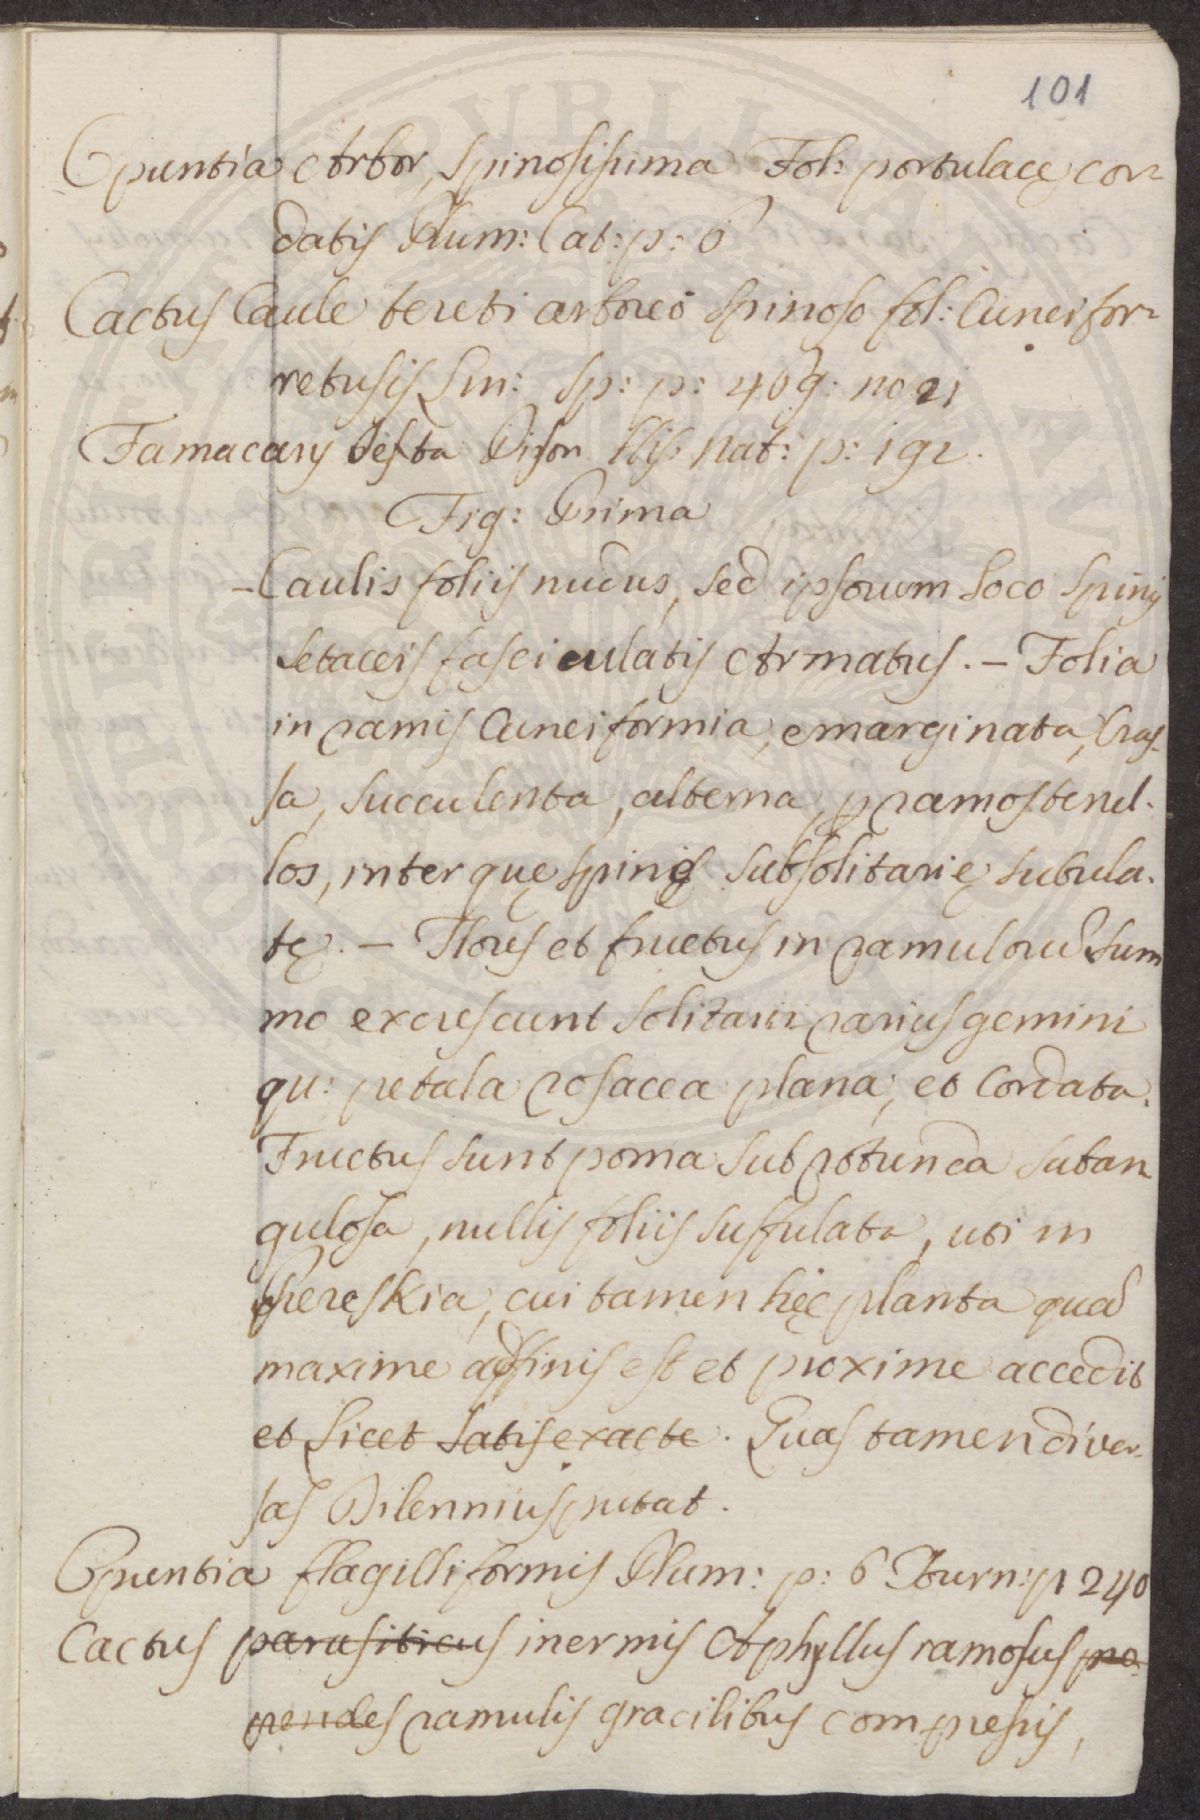 101
Opuntia Arbor, spinosissima Fol: portulacę cor=
datis Plum: Cat: p: 6
Cactus Caule tereti arboreo spinoso fol: Cuneifor=
retusis Lin: sp: p: 469. no 21
Jamacary Testa Pison His: nat: p: 192.
Fig: Prima
- Caulis foliis nudus, sed ipsorum loco spinis
setaceis fasciculatis Armatus. - Folia
in ramis Cuneiformia, emarginata, Cras-
sa, succulenta, alterna, p ramos tenel-
los, interquę spinis subsolitarię subula-
tę. - Flores et fructus in ramulorũ sum
mo excrescunt solitarii rarius gemini
qu: petala rosacea plana, et Cordata.
Fructus sunt poma subrotunda suban
gulosa, nullis foliis suffulata, uti in
Pereskia, cui tamen hęc planta quad
maxime affinis est et proxime accedit
et licet satis exacte. Quas tamen diver-
sas Dilennius putat.
Opuntia flagilliformis Plum: p: 6 Tourn: p 240
Cactus parasiticus inermis Aphyllus ramosus pro-
pendes ramulis gracilibus compressis,